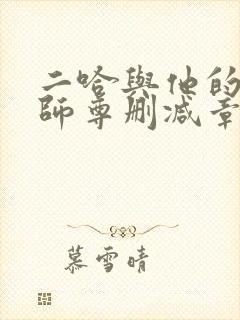 二哈與他的
師尊刪減章
慕雪晴